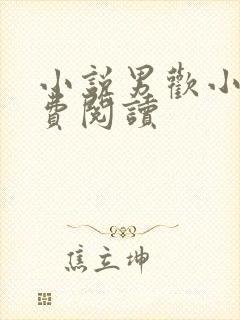 小説男歡小
費閱讀
焦立坤